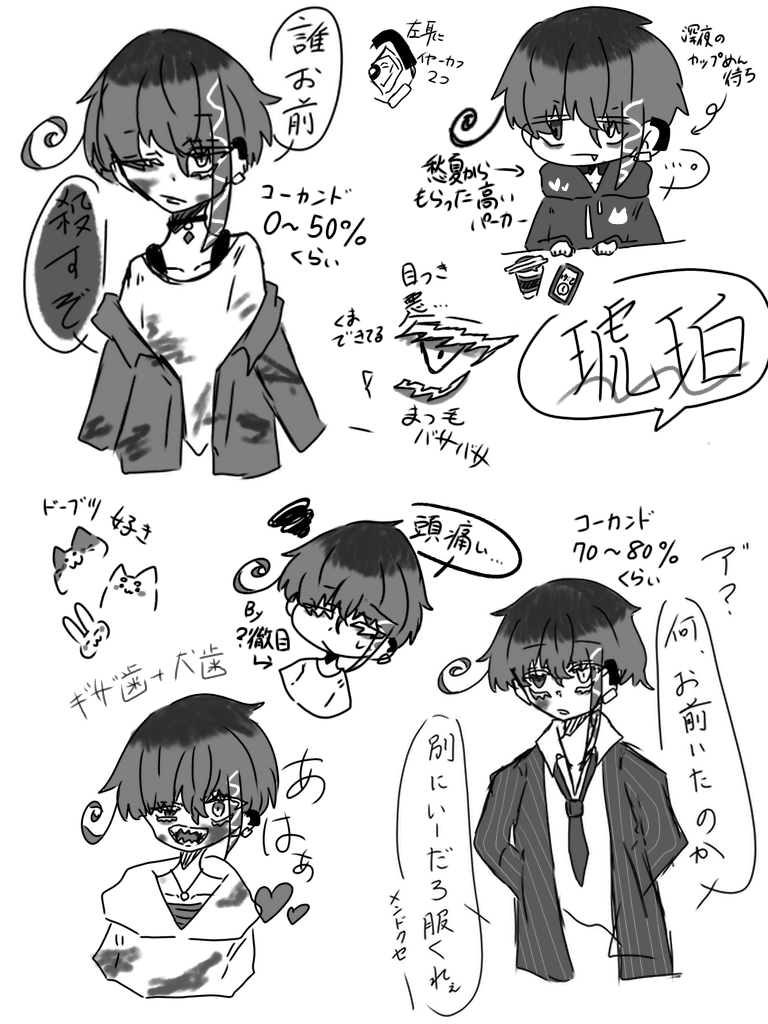 誰お前
殺すぞ
コーカンド
0〜50%
くらい
左耳に
イヤーカフ
2つ
深夜の
カップめん
待ち
愁夏から
もらった高い
パーカー
…。
目つき
悪…
くま
できてる
まつ毛
バサバサ
琥珀
ドーブツ
好き
頭痛い…
By
?徹目
ギザ歯+犬歯
あはぁ
コーカンド
70〜80%
くらい
ア゙?
何、お前いたのか
別にいーだろ服くれぇ
メンドクセ